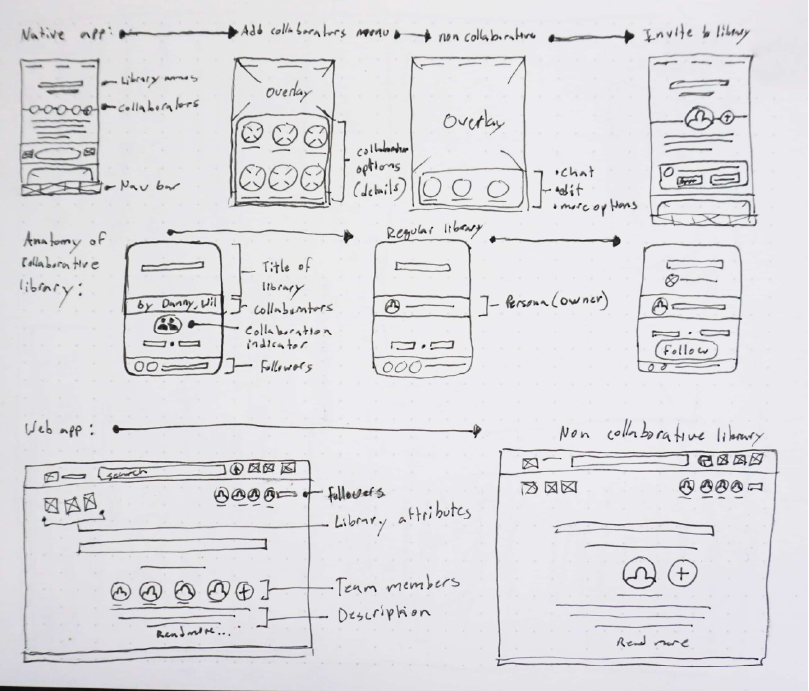 Native app:
Add collaborators menu
non collaborative
Invite to library
Library names
collaborators
Nav bar
Overlay
collaborator
options
(details)
Overlay
• chat
• edit
• more options
Anatomy of
collaborative
library:
Title of
library
by Danny, Wil
collaborators
Collaboration
indicator
Followers
Regular library
Persona (owner)
Follow
Web app:
Non collaborative library
search
Followers
Library attributes
Team members
Description
Read more...
Read more